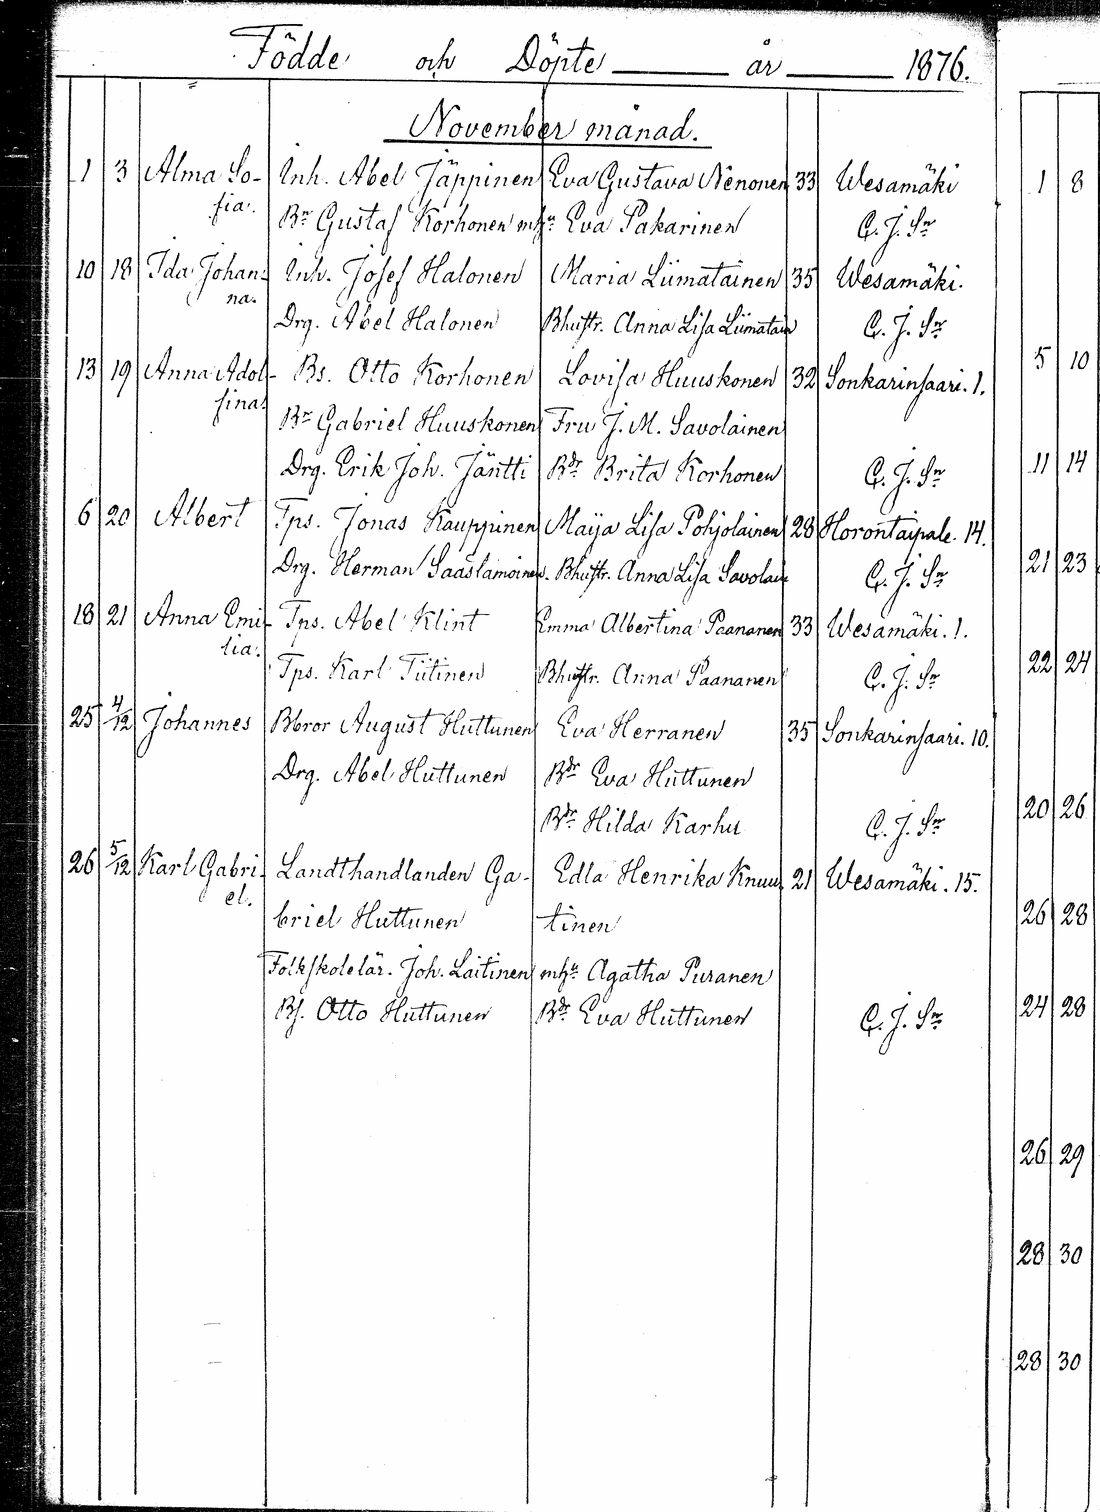 Födde och Döpte ____ år ____ 1876.
November månad.
1 3 Alma So- Inh. Abel Jäppinen Eva Gustava Nenonen 33 Wesamäki
fia. Br Gustaf Korhonen mhu Eva Pakarinen C. J. Sn
10 18 Ida Johan- Inh. Josef Halonen Maria Liimatainen 35 Wesamäki.
na. Drg. Abel Halonen Bhustr. Anna Lisa Liimatain C. J. Sn
13 19 Anna Adol- Bs. Otto Korhonen Lovisa Huuskonen 32 Sonkarinsaari. 1.
fina. Br Gabriel Huuskonen Fru J. M. Savolainen
Drg. Erik Joh. Jäntti Bdr Brita Korhonen C. J. Sn
6 20 Albert Tps. Jonas Kauppinen Maija Lisa Pohjolainen 28 Horontaipale. 14.
Drg. Herman Saastamoinen. Bhustr. Anna Lisa Savolain C. J. Sn
18 21 Anna Emi- Tps. Abel Klint Emma Albertina Paananen 33 Wesamäki. 1.
lia. Tps. Karl Tiitinen Bhustr. Anna Paananen C. J. Sn
25 4/12 Johannes Bbror August Huttunen Eva Herranen 35 Sonkarinsaari. 10.
Drg. Abel Huttunen Bdr Eva Huttunen
Bdr Hilda Karhu C. J. Sn
26 5/12 Karl Gabri- Landthandlanden Ga- Edla Henrika Knuu- 21 Wesamäki. 15.
el. briel Huttunen tinen
Folkskolelär. Joh. Laitinen mhu Agatha Puranen
Bs. Otto Huttunen Bdr Eva Huttunen C. J. Sn
1 8
5 10
11 14
21 23
22 24
20 26
26 28
24 28
26 29
28 30
28 30